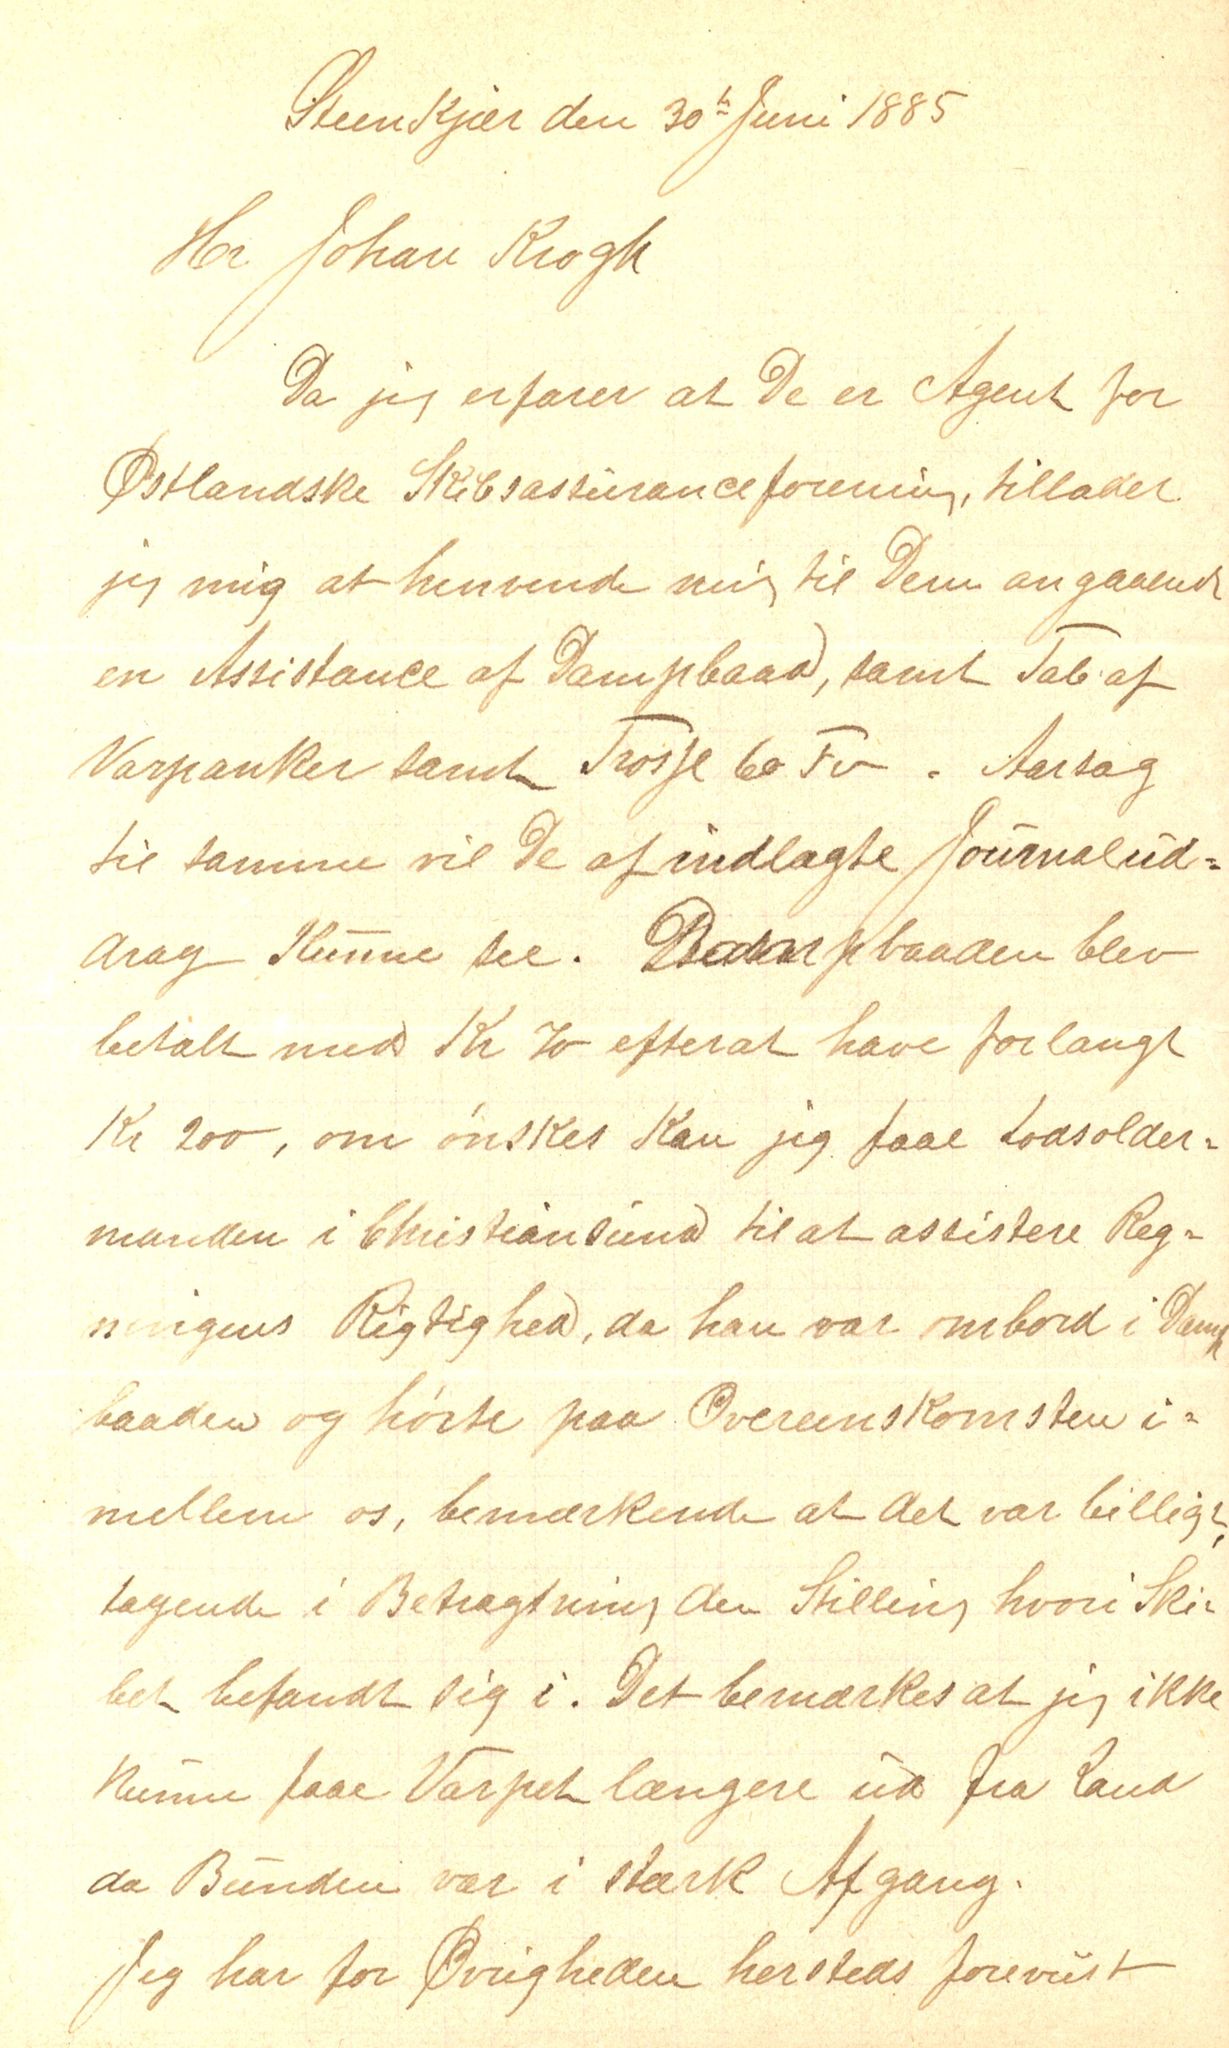 Steenkjær den 30te Juni 1885
Hr Johan Krogh
Da jeg erfarer at De er Agent for
Østlandske Skibsassuranceforening, tillader
jeg mig at henvende mig til Dem angaaende
en Assistance af Dampbaad, samt Tab af
Varpanker samt Trosse 60 Fv. Aarsag
til samme vil De af indlagte Journalud=
drag kunne see. Dampbaaden blev
betalt med Kr 70 efterat have forlangt
Kr 200, om ønskes kan jeg faae Lodsolder=
manden i Christiansund til at assistere Reg=
ningens Rigtighed, da han var ombord i Damp
baaden og hørte paa Overeenskomsten i=
mellem os, bemærkende at det var billigt,
tagende i Betragtning den Stilling hvori Ski=
bet befandt sig i. Det bemærkes at jeg ikke
kunne faae Varpet længere ud fra Land
da Bunden var i stærk Afgang.
Jeg har for Øvrigheden hersteds foreviist